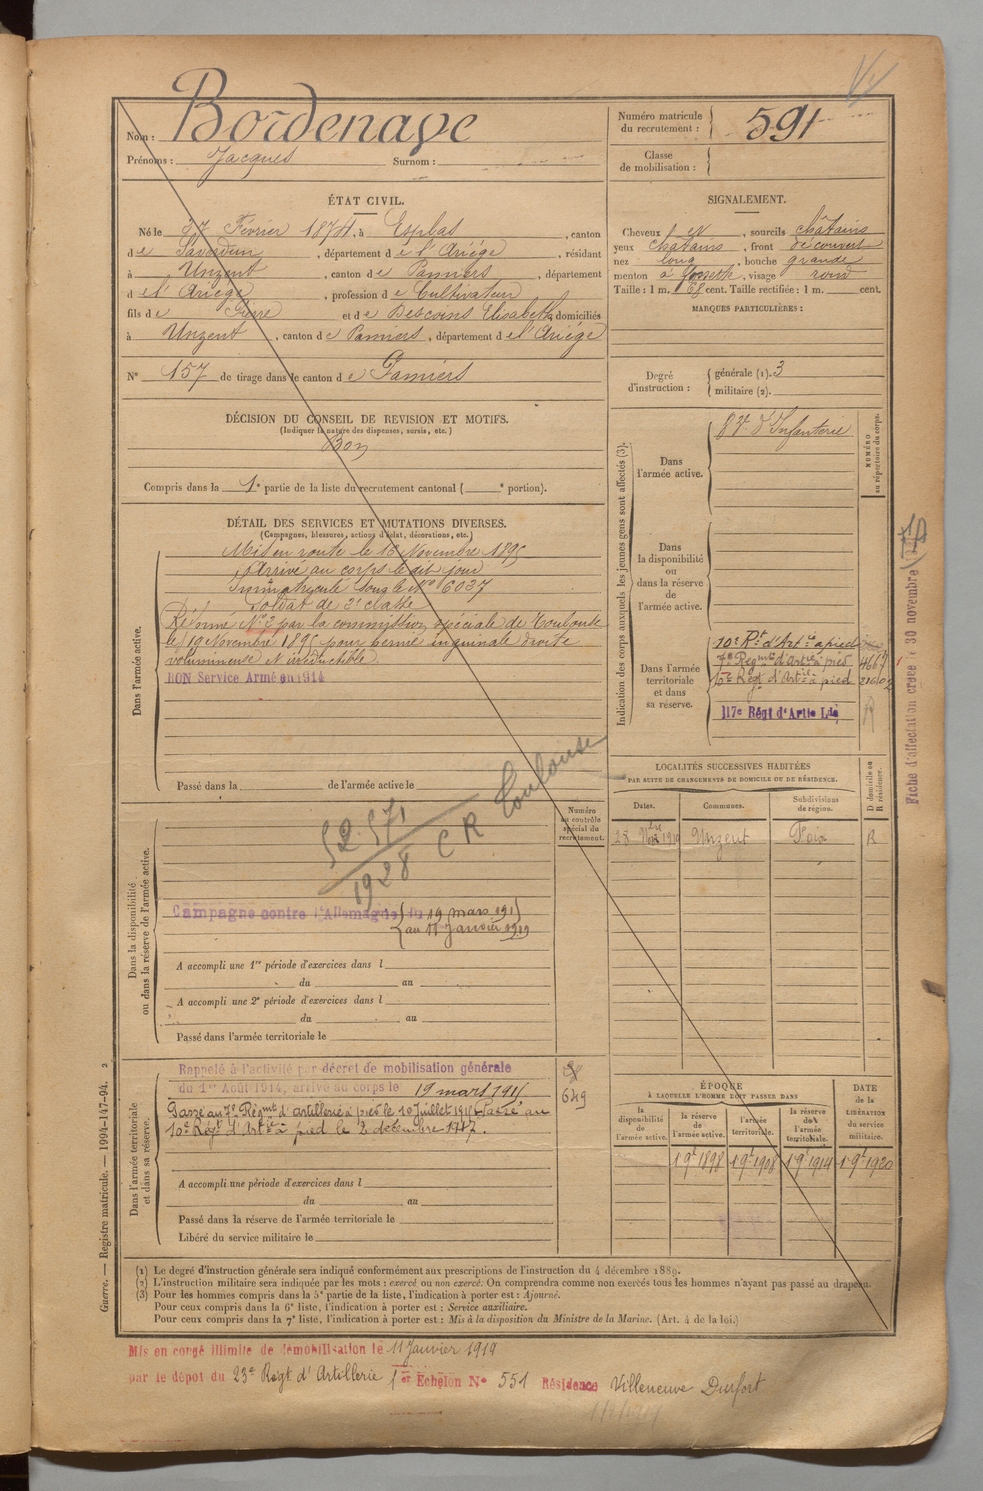 Nom : Bordenave
Prénoms : Jacques Surnom :
Numéro matricule du recrutement : 591
Classe de mobilisation :
ÉTAT CIVIL.
Né le 27 Février 1874, à Esplas, canton
de Saverdun, département de l'Ariège, résidant
à Unzent, canton de Pamiers, département
de l'Ariège, profession de Cultivateur
fils de Pierre et de Descoins Elisabeth, domiciliés
à Unzent, canton de Pamiers, département de l'Ariège
N° 157 de tirage dans le canton de Pamiers
DÉCISION DU CONSEIL DE REVISION ET MOTIFS.
(Indiquer la nature des dispenses, sursis, etc.)
Bon
Compris dans la 1e partie de la liste du recrutement cantonal ( e portion).
SIGNALEMENT.
Cheveux et, sourcils châtains
yeux châtains, front découvert
nez long, bouche grande
menton à fossette, visage rond
Taille : 1 m. 68 cent. Taille rectifiée : 1 m. cent.
MARQUES PARTICULIÈRES :
Degré d'instruction : générale (1). 3
militaire (2).
DÉTAIL DES SERVICES ET MUTATIONS DIVERSES.
(Campagnes, blessures, actions d'éclat, décorations, etc.)
Dans l'armée active.
Mis en route le 16 Novembre 1895
Arrivé au corps le dit jour
Immatriculé sous le N° 6037
Soldat de 2e classe
Réformé N° 2 par la commission spéciale de Toulouse
le 19 Novembre 1895 pour hernie inguinale droite
volumineuse et irréductible
BON Service Armé en 1914
Passé dans la de l'armée active le
Indication des corps auxquels les jeunes gens sont affectés (3).
NUMÉRO au répertoire du corps.
Dans l'armée active.
d'Infanterie
Dans la disponibilité ou dans la réserve de l'armée active.
Dans l'armée territoriale et dans sa réserve.
10e Rt d'Artie à pied
7e Régmt d'Artie à pied
10e Régt d'Artie à pied
117e Régt d'Artie Lde
R
Fiche d'affectation créée le 30 novembre
LOCALITÉS SUCCESSIVES HABITÉES
PAR SUITE DE CHANGEMENTS DE DOMICILE OU DE RÉSIDENCE.
D domicile ou R résidence.
Dates. Communes. Subdivisions de région.
Unzent Foix R
Numéro au contrôle spécial du recrutement.
Dans la disponibilité ou dans la réserve de l'armée active.
52.571
1928 CR Toulouse
Campagne contre l'Allemagne du 19 mars 1915
au 11 Janvier 1919
A accompli une 1re période d'exercices dans l
du au
A accompli une 2e période d'exercices dans l
du au
Passé dans l'armée territoriale le
Dans l'armée territoriale et dans sa réserve.
Rappelé à l'activité par décret de mobilisation générale
du 1er Août 1914, arrivé au corps le 19 mars 1915
Passé au 7e Régmt d'artillerie à pied le 10 Juillet 1915. Passé au
10e Régt d'Artie à pied le 2 décembre 1917.
649
A accompli une période d'exercices dans l
du au
Passé dans la réserve de l'armée territoriale le
Libéré du service militaire le
ÉPOQUE
À LAQUELLE L'HOMME DOIT PASSER DANS
la disponibilité de l'armée active. la réserve de l'armée active. l'armée territoriale. la réserve de l'armée territoriale.
DATE de la LIBÉRATION du service militaire.
1 9e 1898 1 9e 1908 1 9e 1914 1 9e 1920
(1) Le degré d'instruction générale sera indiqué conformément aux prescriptions de l'instruction du 4 décembre 1889.
(2) L'instruction militaire sera indiquée par les mots : exercé ou non exercé. On comprendra comme non exercés tous les hommes n'ayant pas passé au drapeau.
(3) Pour les hommes compris dans la 5e partie de la liste, l'indication à porter est : Ajourné.
Pour ceux compris dans la 6e liste, l'indication à porter est : Service auxiliaire.
Pour ceux compris dans la 7e liste, l'indication à porter est : Mis à la disposition du Ministre de la Marine. (Art. 4 de la loi.)
Guerre. — Registre matricule. — 1994-147-94. 2
Mis en congé illimité de démobilisation le 11 Janvier 1919
par le dépôt du 23e Régt d'Artillerie 1er Echelon N° 551 Résidence Villeneuve Durfort